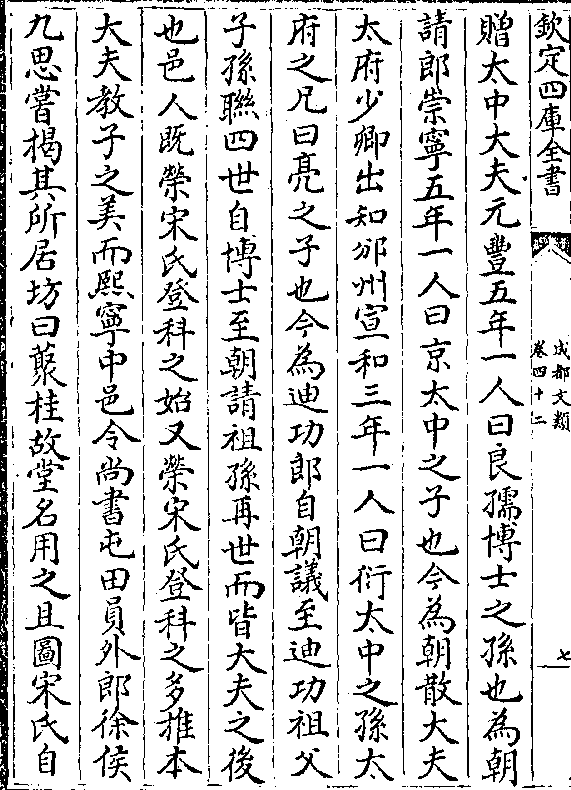 欽定四庫全書
成都文類
卷四十二
七
贈太中大夫元豐五年一人曰良孺博士之孫也為朝
請郎崇寧五年一人曰京太中之子也今為朝散大夫
太府少卿出知邠州宣和三年一人曰衍太中之孫太
府之兄曰亮之子也今為迪功郎自朝議至迪功祖父
子孫聯四世自博士至朝請祖孫再世而皆大夫之後
也邑人既榮宋氏登科之始又榮宋氏登科之多推本
大夫教子之美而熙寧中邑令尚書屯田員外郎徐侯
九思嘗榜其所居坊曰藂桂故堂名用之且圖宋氏自